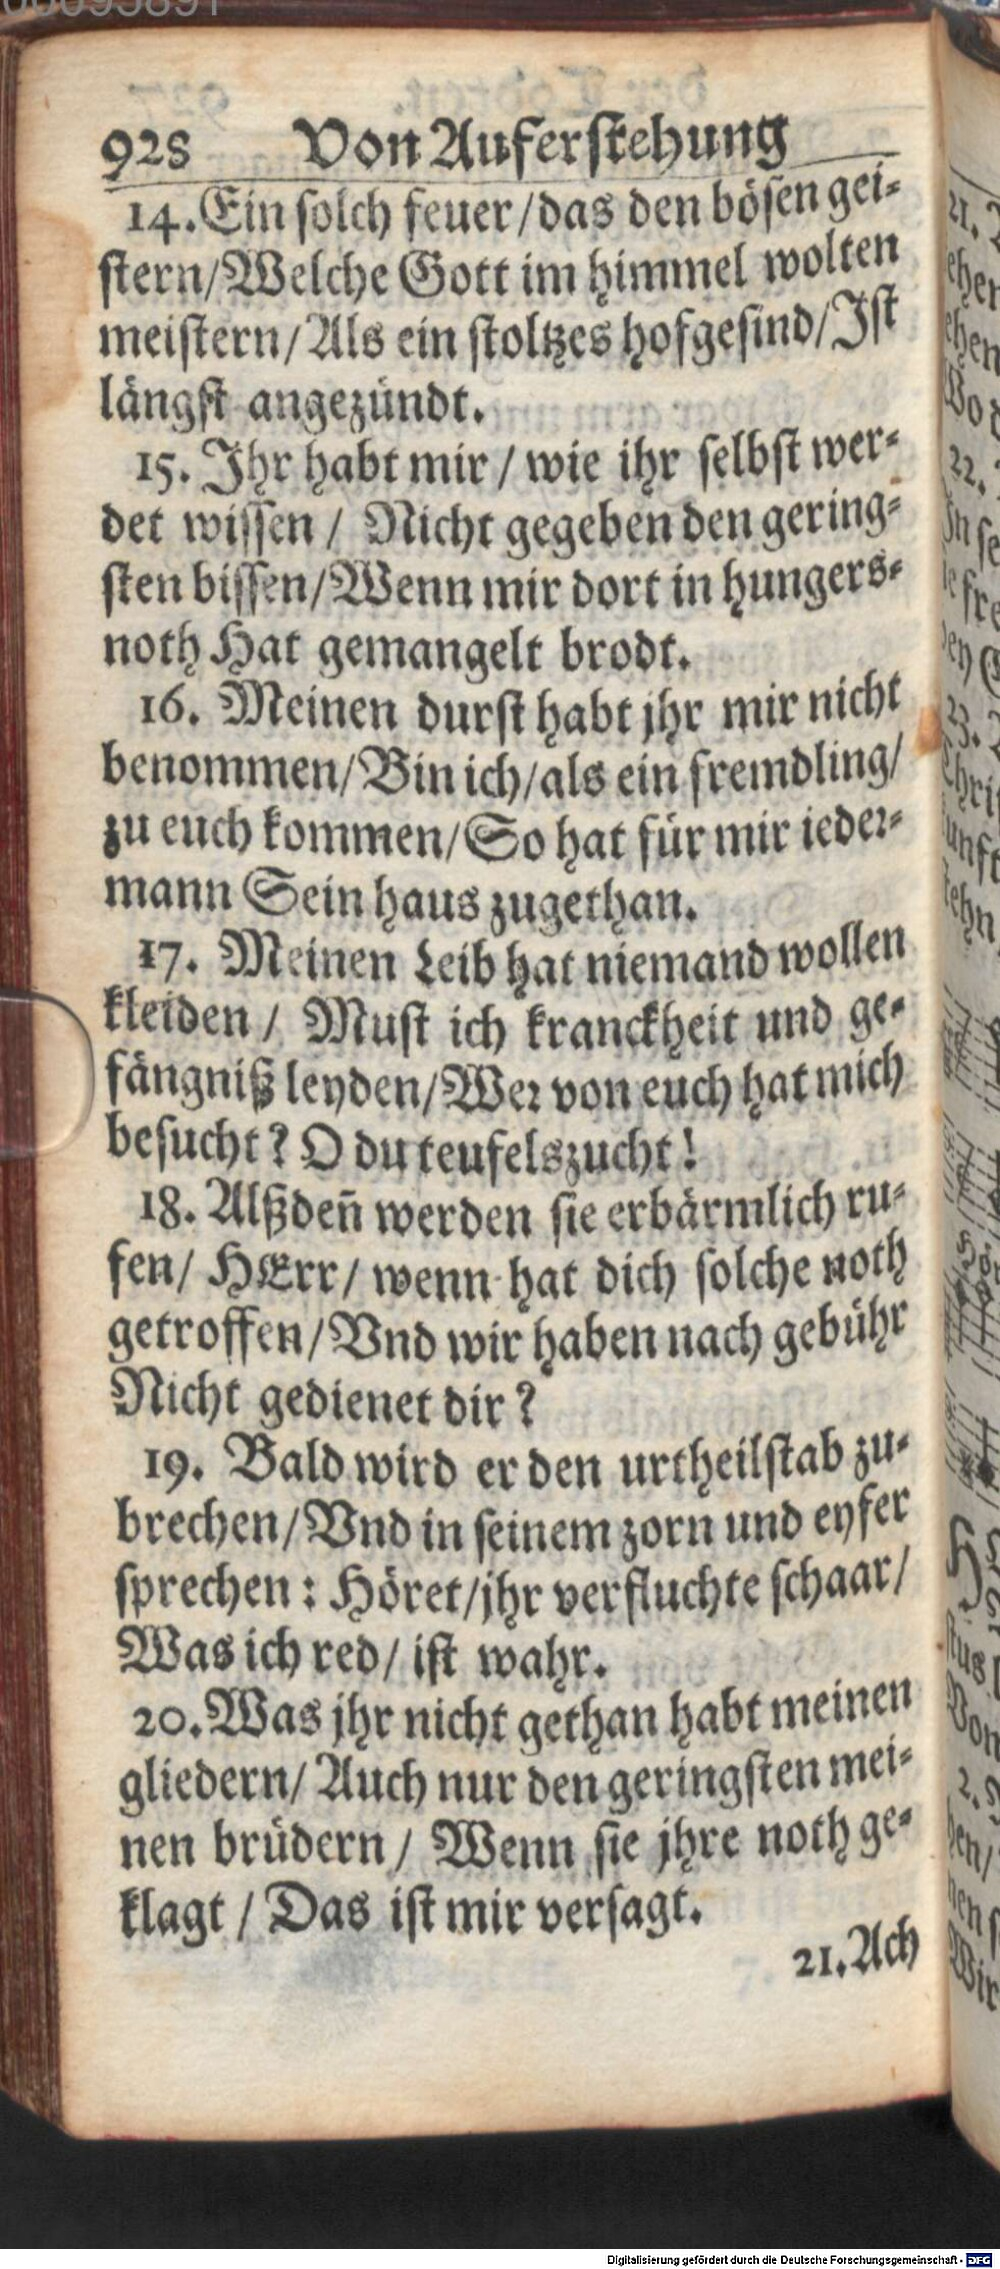 928 Von Auferstehung
14. Ein solch feuer/das den bösen gei-
stern/Welche Gott im himmel wolten
meistern/Als ein stoltzes hofgesind/Ist
längst angezündt.
15. Ihr habt mir / wie ihr selbst wer-
det wissen / Nicht gegeben den gering-
sten bissen/Wenn mir dort in hungers-
noth Hat gemangelt brodt.
16. Meinen durst habt jhr mir nicht
benommen/Bin ich/als ein fremdling/
zu euch kommen/So hat für mir ieder-
mann Sein haus zugethan.
17. Meinen Leib hat niemand wollen
kleiden / Must ich kranckheit und ge-
fängniß leyden/Wer von euch hat mich
besucht? O du teufelszucht!
18. Alßdeñ werden sie erbärmlich ru-
fen/ HErr/ wenn hat dich solche noth
getroffen/Vnd wir haben nach gebühr
Nicht gedienet dir?
19. Bald wird er den urtheilstab zu-
brechen/Vnd in seinem zorn und eyfer
sprechen: Höret/jhr verfluchte schaar/
Was ich red/ ist wahr.
20. Was jhr nicht gethan habt meinen
gliedern/ Auch nur den geringsten mei-
nen brüdern / Wenn sie jhre noth ge-
klagt / Das ist mir versagt.
21. Ach
Digitalisierung gefördert durch die Deutsche Forschungsgemeinschaft - DFG